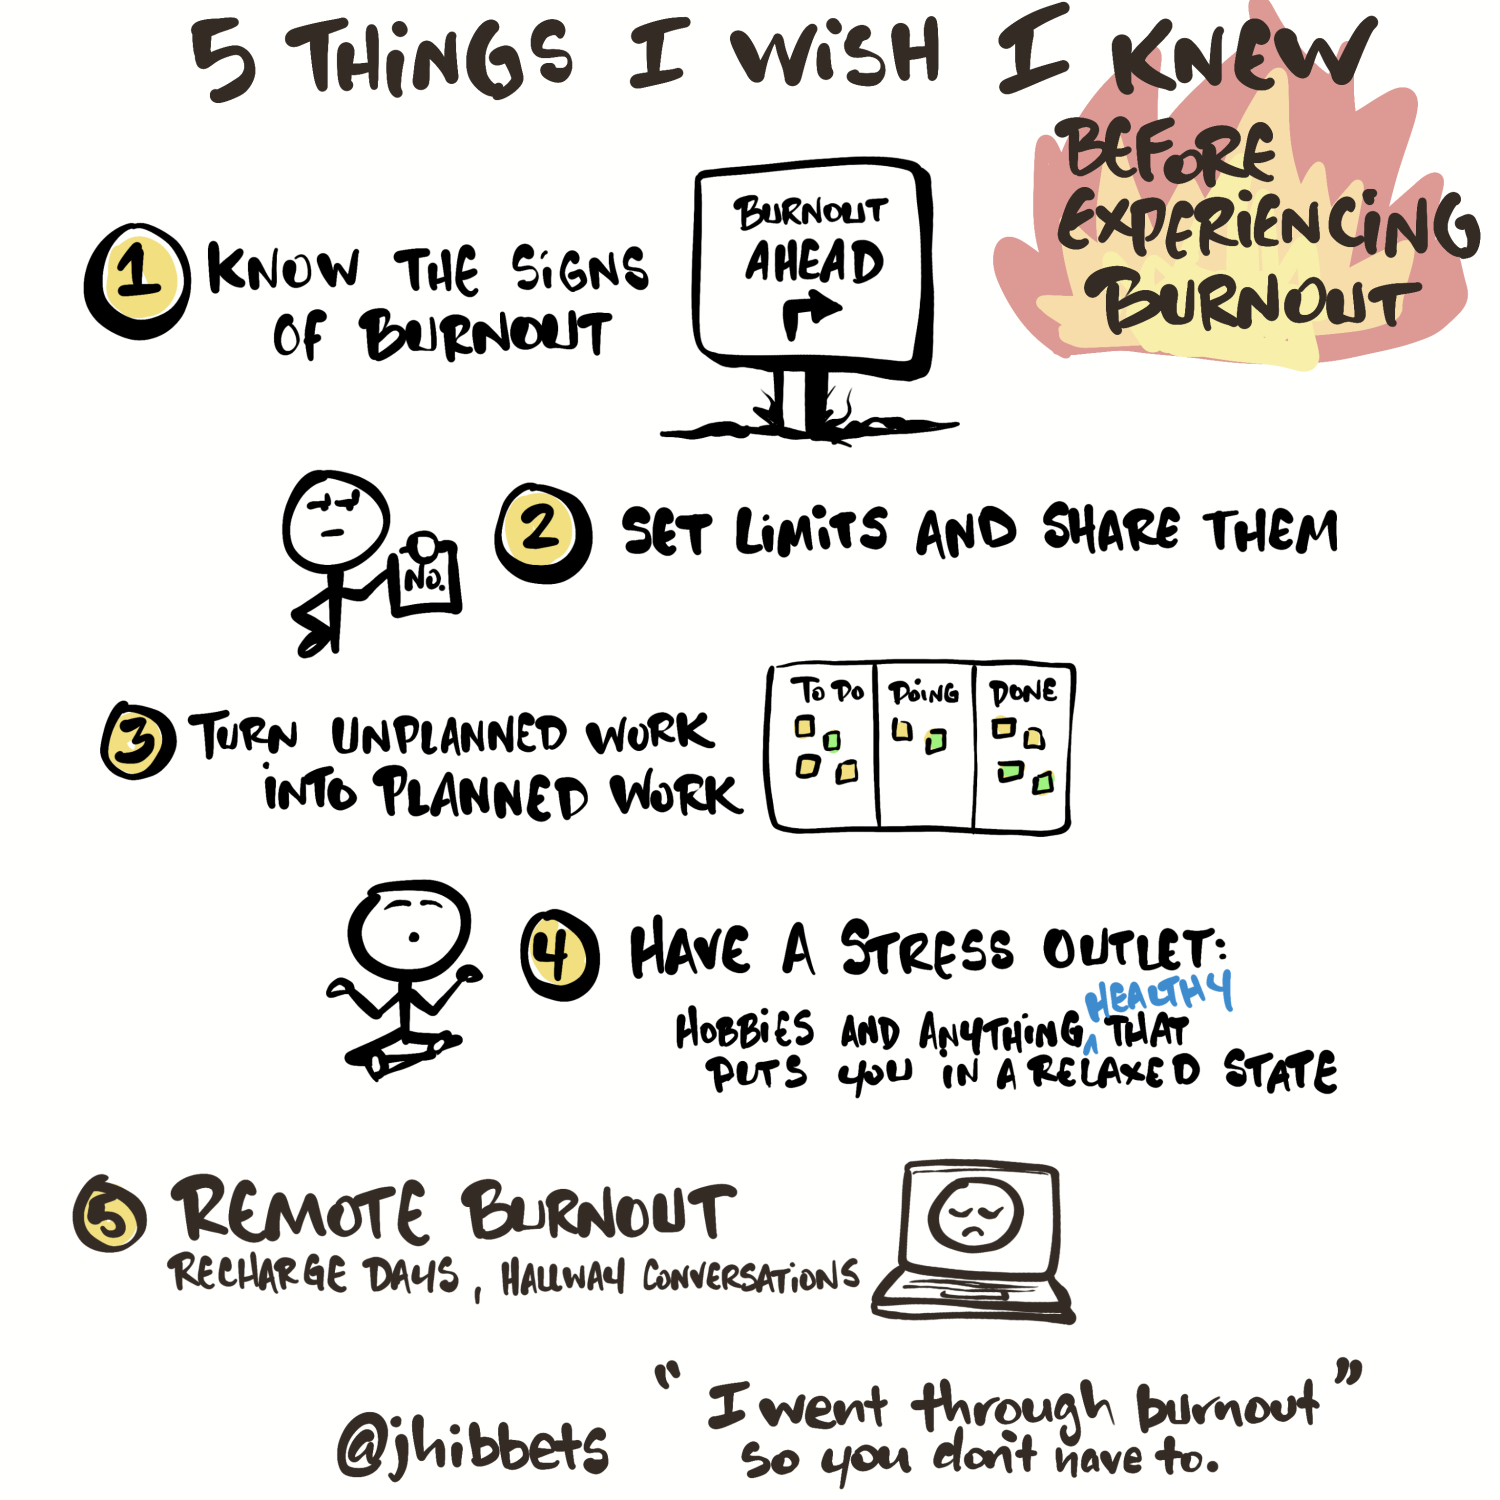 5 THiNGS I WiSH I KNEW
BEFORE
EXPERiENCiNG
BURNOUT
1 KNOW THE SiGNS
OF BURNOUT
BURNOUT
AHEAD
NO.
2 SET LiMiTS AND SHARE THEM
3 TURN UNPLANNED WORK
iNTO PLANNED WORK
TO DO DOiNG DONE
4 HAVE A STRESS OUTLET:
HEALTHY
HOBBiES AND ANYTHiNG ^ THAT
PUTS YOU iN A RELAXED STATE
5 REMOTE BURNOUT
RECHARGE DAYS, HALLWAY CONVERSATiONS
"I went through burnout"
so you don't have to.
@jhibbets